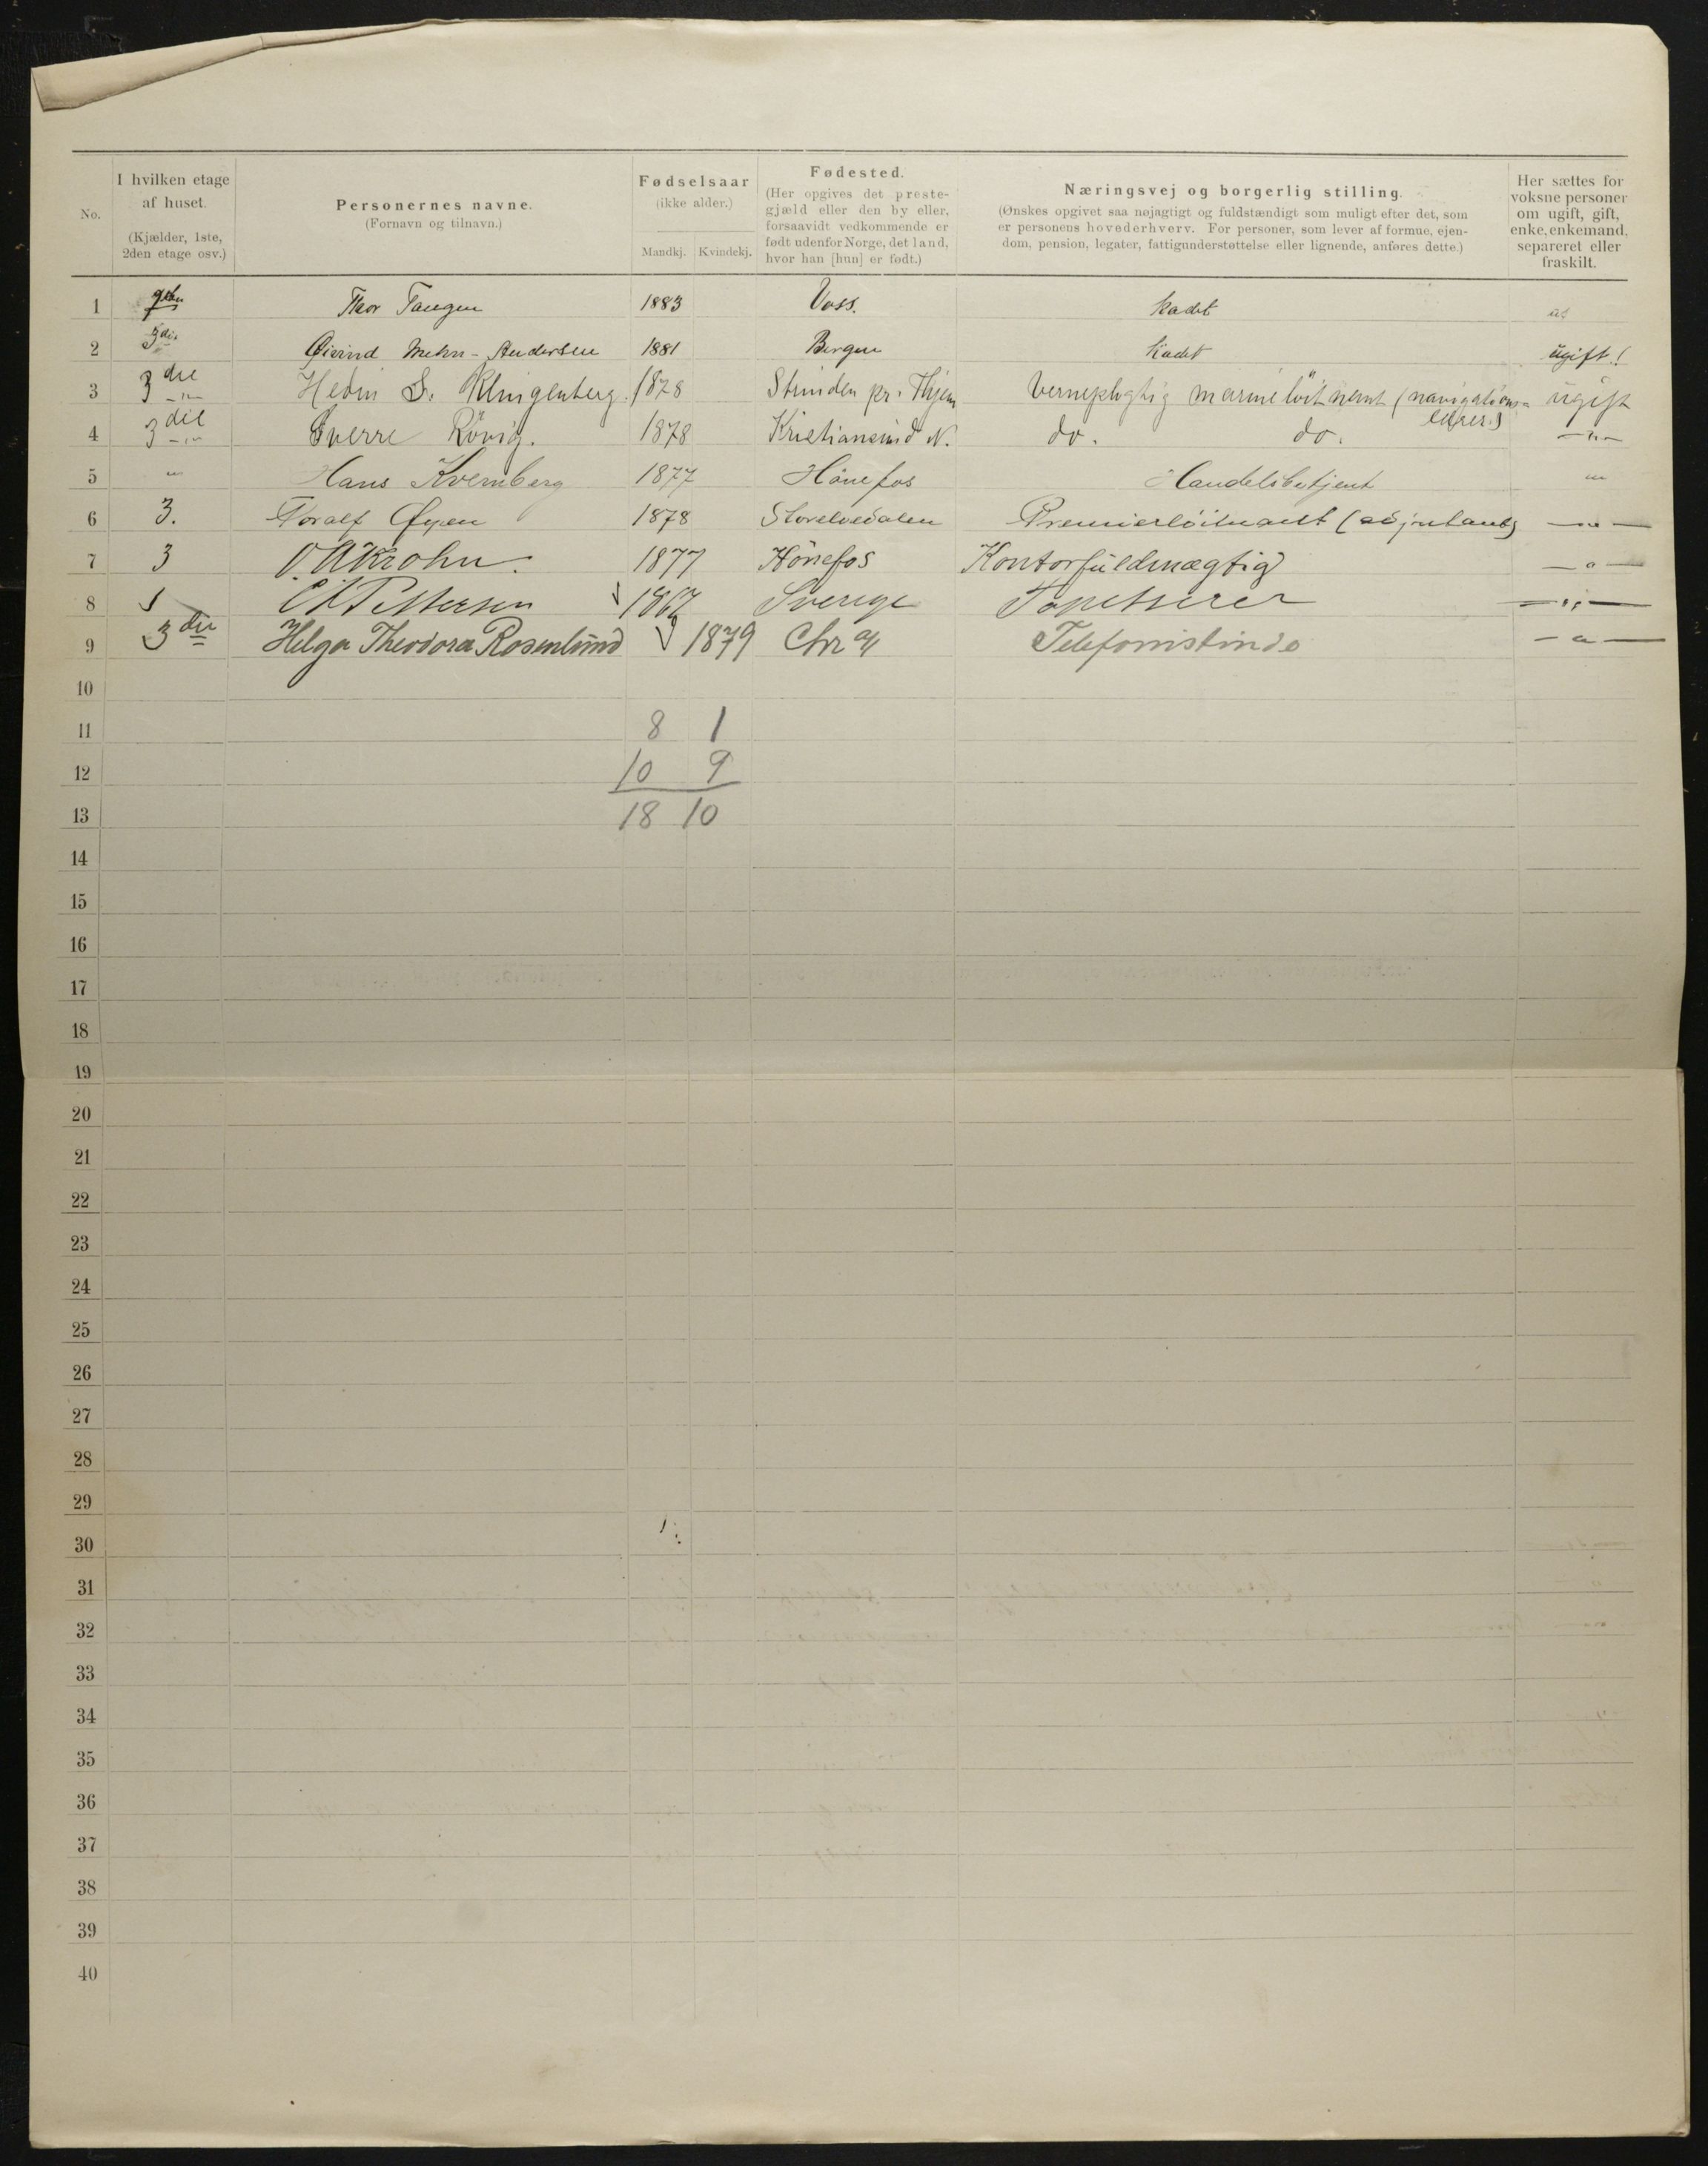 No. I hvilken etage af huset. (Kjælder, 1ste, 2den etage osv.) Personernes navne. (Fornavn og tilnavn.) Fødselsaar (ikke alder.) Mandkj. Kvindekj. Fødested. (Her opgives det prestegjæld eller den by eller, forsaavidt vedkommende er født udenfor Norge, det land, hvor han [hun] er født.) Næringsvej og borgerlig stilling. (Ønskes opgivet saa nøjagtigt og fuldstændigt som muligt efter det, som er personens hovederhverv. For personer, som lever af formue, ejendom, pension, legater, fattigunderstøttelse eller lignende, anføres dette.) Her sættes for voksne personer om ugift, gift, enke, enkemand, separeret eller fraskilt.
1 Thor Tangen 1883 Voss. Kadet
2 3die Øivind Mehn-Andersen 1881 Bergen Kadet ugift!
3 3die Hedin S. Klingenberg. 1878 Strinden pr. Thjem Verneplugtig marineløitnant (navigations-lærer) ugift
4 3die -"- Sverre Rövig. 1878 Kristiansund N. do. do. -"-
5 " Hans Kvernberg 1877 Hönefos Handelsbetjent "
6 3. Toralf Øyen 1878 Storelvedalen Premierløitnant (adjutant) -"-
7 3 O. A Krohn. 1877 Hönefos Kontorfuldmægtig -"-
8 Pettersen 1867 Sverige Tapetserer -"-
9 3die Helga Theodora Rosenlund 1879 Chr a/ Telefonistinde -"-
10
11 8 1
12 10 9
13 18 10
14
15
16
17
18
19
20
21
22
23
24
25
26
27
28
29
30
31
32
33
34
35
36
37
38
39
40